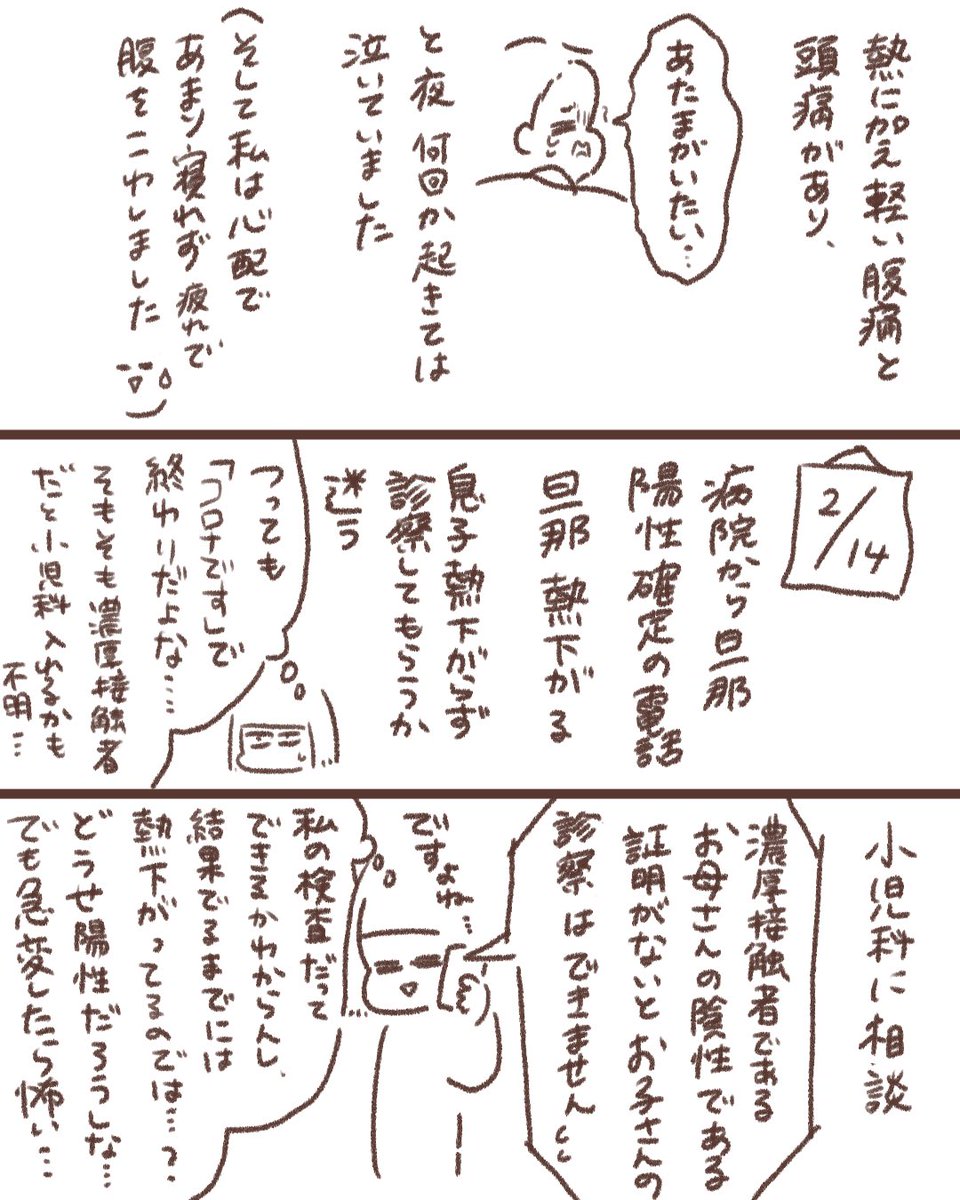 熱に加え軽い腹痛と
頭痛があり、
あたまがいたい…
と夜何回か起きては
泣いていました
(そして私は心配で
あまり寝れず疲れで
腹をこわしました
2/14
病院から旦那
陽性確定の電話
旦那熱下がる
息子熱下がらず
診察してもらうか
迷う
つっても
「コロナです」で
終わりだよな…
そもそも濃厚接触者
だと小児科入れるかも
不明…
小児科に相談
濃厚接触者である
お母さんの陰性である
証明がないとお子さんの
診察はできません(;;
ですよね…
私の検査だって
できるかわからんし、
結果でるまでには
熱下がってるのでは…?
どうせ陽性だろうしな…
でも急変したら怖い…